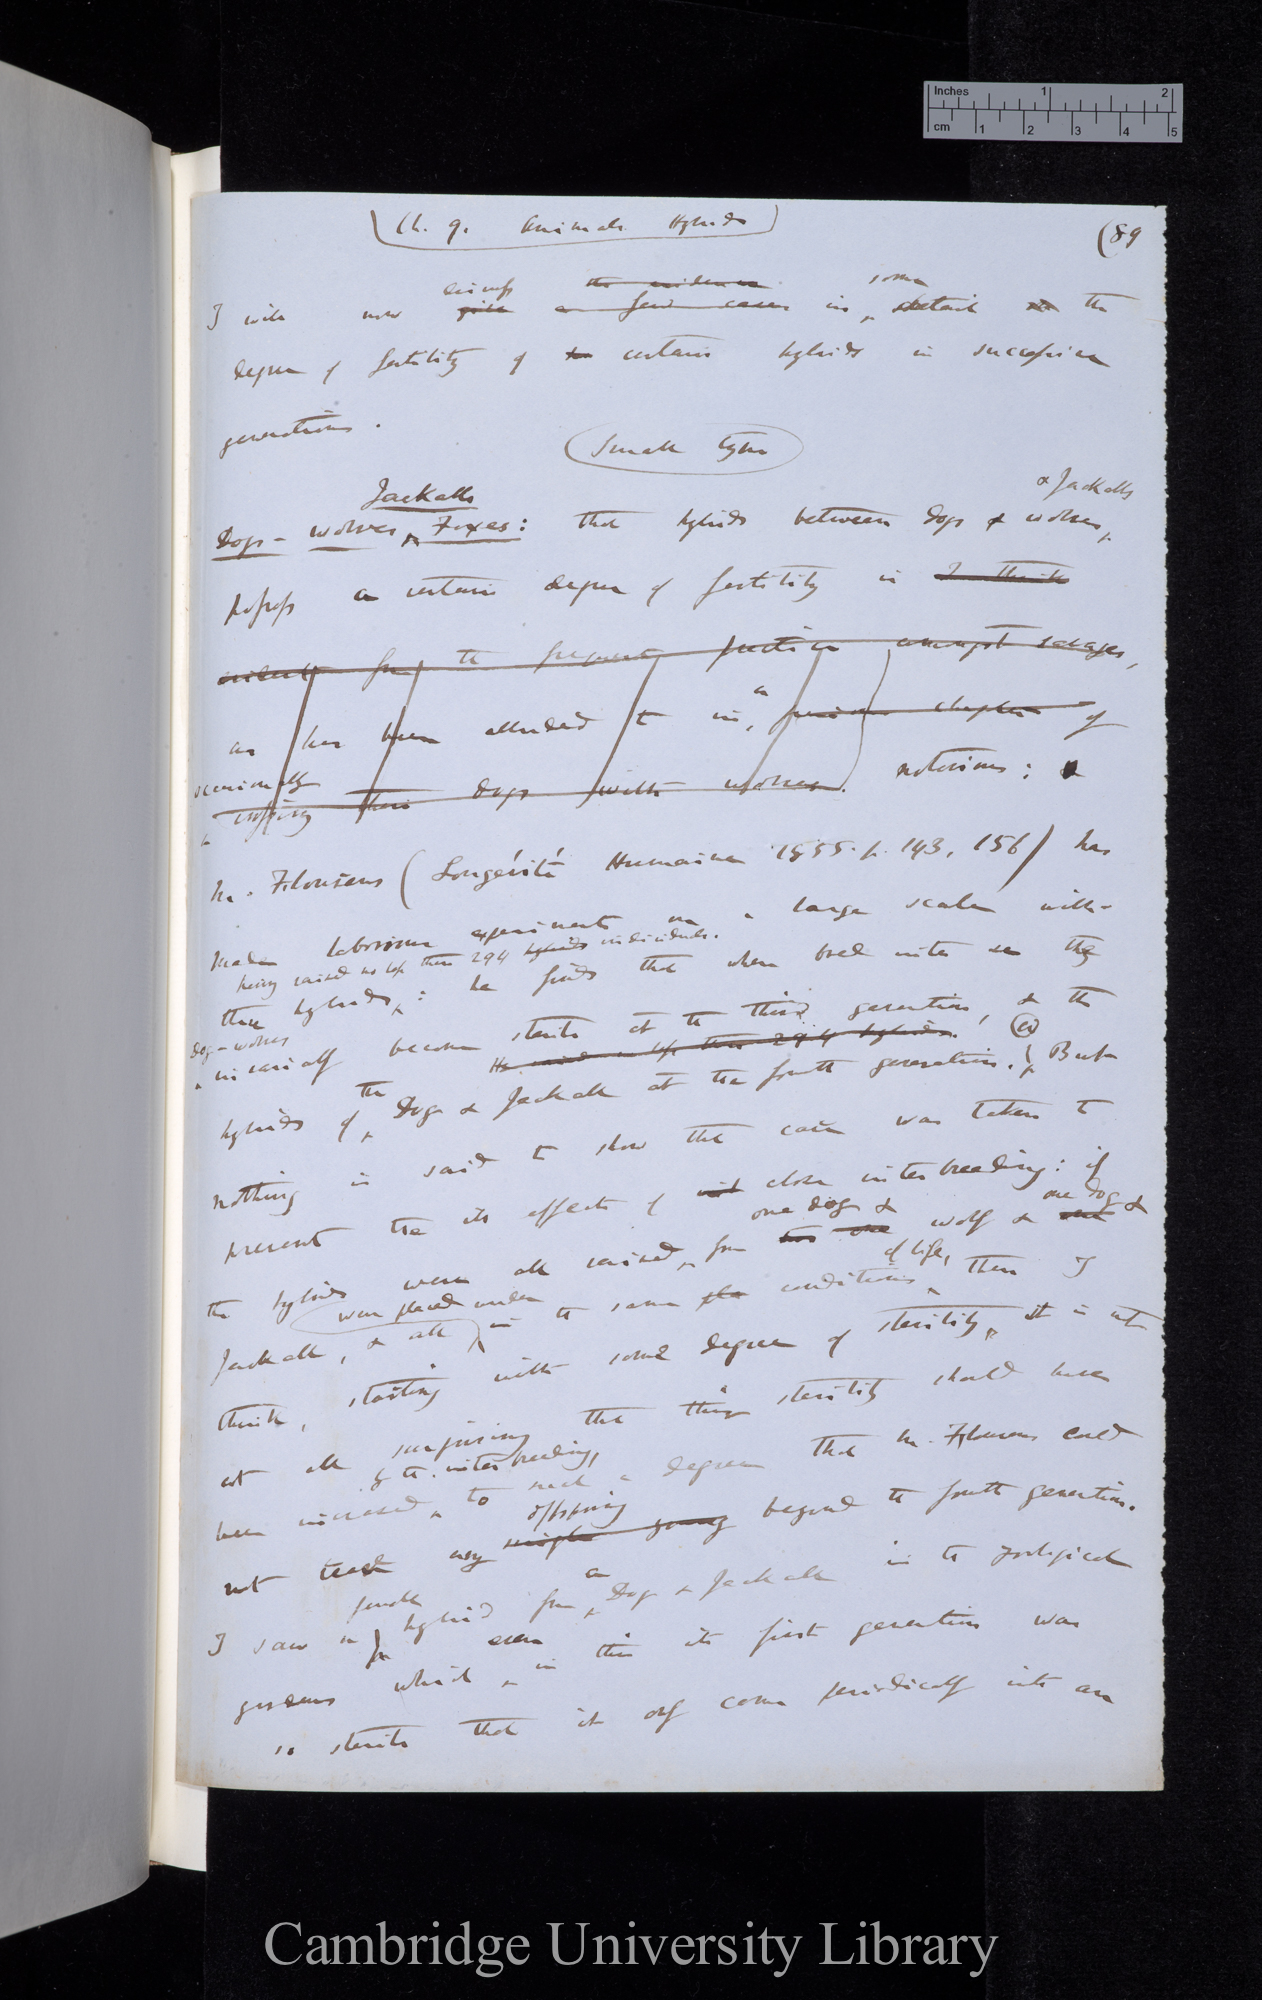 Inches 1 2
cm 1 2 3 4 5
Ch. 9. Animals Hybrids
(89
discuss the evidence some
I will now give a few cases in detail on the
degree of fertility of the certain hybrids in succession
generations.
Small type
Jackalls & Jackalls
Dogs – wolves, Foxes: that hybrids between dogs & wolves,
possess a certain degree of fertility is I think
evident from the frequent practice amongst savages,
a
as has been alluded to in, previous chapter of
occasionally
crossing their dogs with wolves. notorious:
M. Flourens (Longévité Humaine 1855. p. 143, 156) has
made laborious experiments on a large scale with
having raised no less than 294 hybrids individuals.
these hybrids,: he finds that when bred inter se they
Dog-wolves
invariably become sterile at the third generation, & the
He raised no less than 294 hybrids. (a)
the
hybrids of Dog & Jackall at the fourth generation. But
nothing is said to show that care was taken to
prevent the its effects of close interbreeding: if
one dog & one dog &
the hybrids were all raised, from two one wolf & one
were placed under of life,
Jackall, & all in the same conditions, then I
think, starting with some degree of sterility, it is not
at all surprising that this sterility should have
by the interbreeding,
been increased, to such a degree that M. Flourens could
offspring
not any single young beyond the fourth generation.
female a
I saw a hybrid from Dog & Jackall in the zoological
even
gardens which, in this its first generation was
so sterile that it only came periodically into an
Cambridge University Library